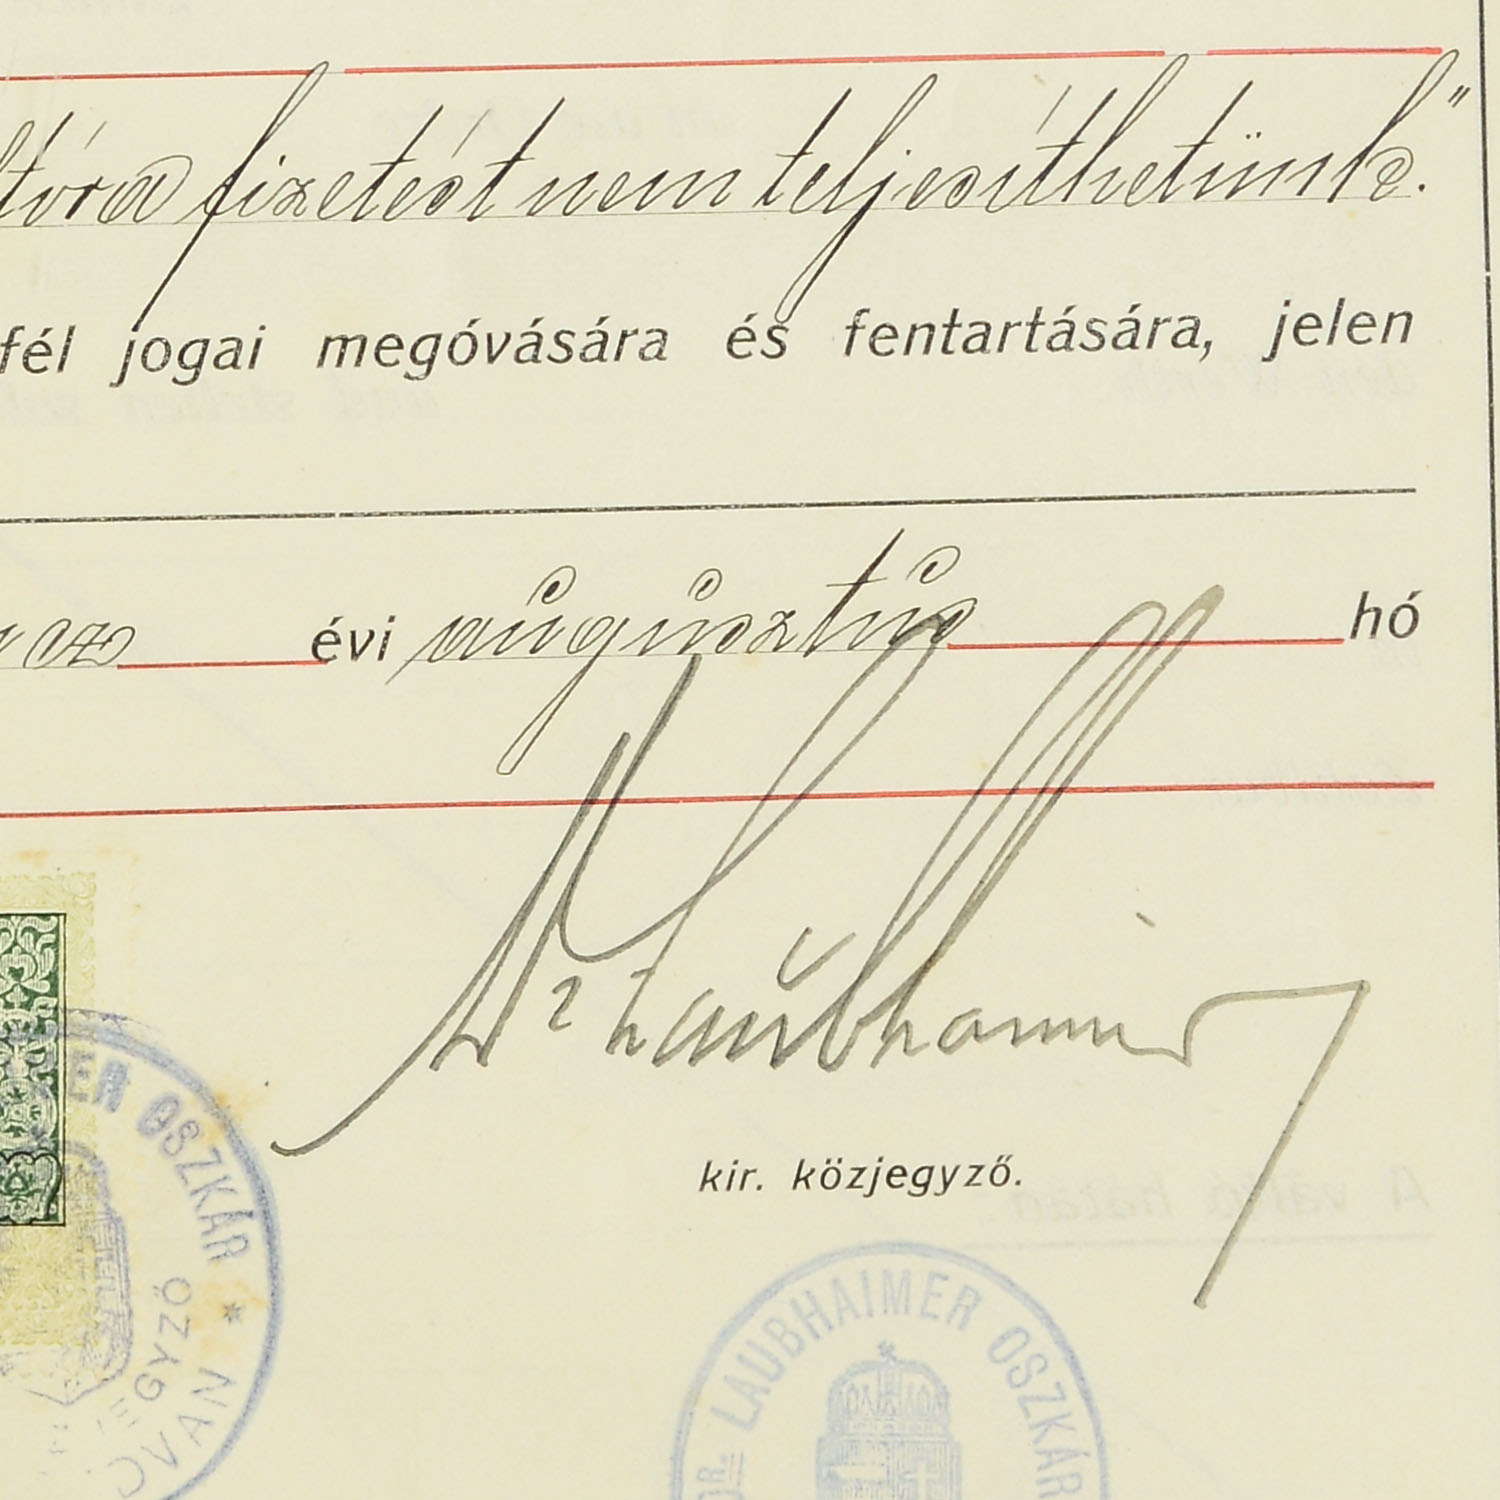 fizetést nem teljesíthetünk."
fél jogai megóvására és fentartására, jelen
évi augusztus hó
Dr Laubhaimer
kir. közjegyző.
OSZKÁR *
DR. LAUBHAIMER OSZKÁR